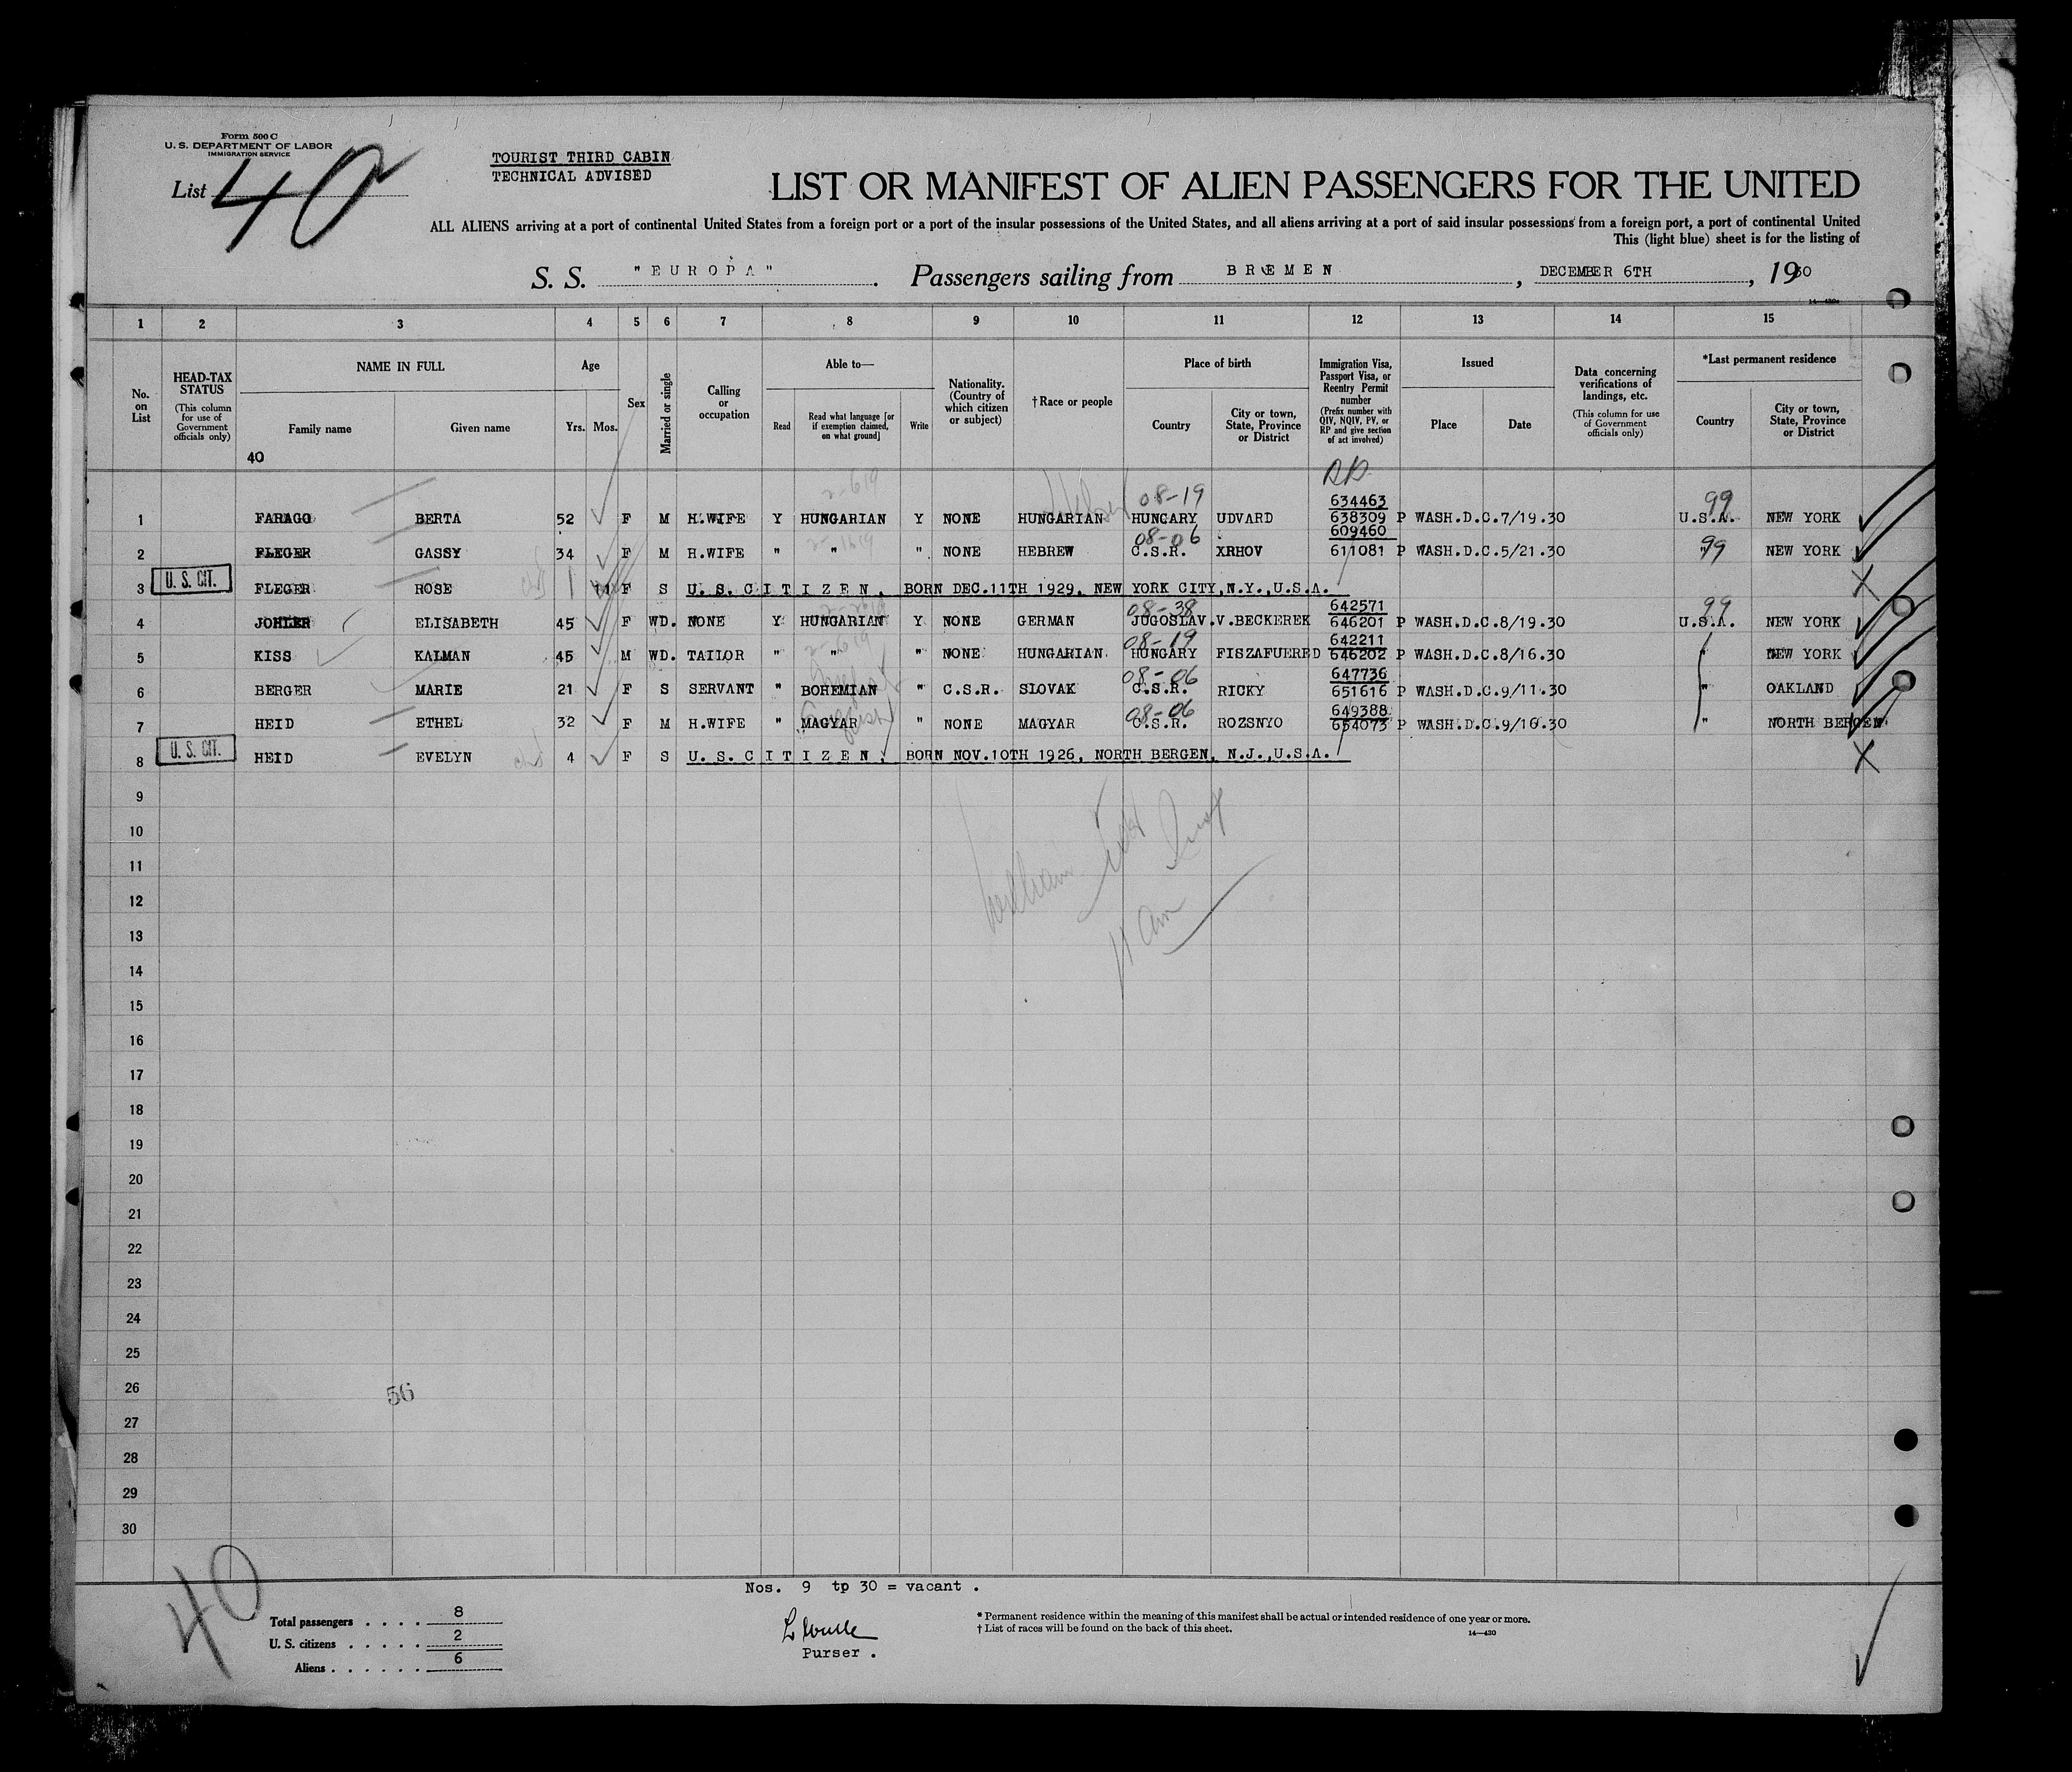 Form 500 C
U. S. DEPARTMENT OF LABOR
IMMIGRATION SERVICE
List 40
TOURIST THIRD CABIN
TECHNICAL ADVISED
LIST OR MANIFEST OF ALIEN PASSENGERS FOR THE UNITED
ALL ALIENS arriving at a port of continental United States from a foreign port or a port of the insular possessions of the United States, and all aliens arriving at a port of said insular possessions from a foreign port, a port of continental United
This (light blue) sheet is for the listing of
S. S. "EUROPA". Passengers sailing from BREMEN, DECEMBER 6TH, 1930
1 2 3 4 5 6 7 8 9 10 11 12 13 14 15
No. on List
HEAD-TAX STATUS
(This column for use of Government officials only)
NAME IN FULL
Family name
Given name
40
Age
Yrs. Mos.
Sex
Married or single
Calling or occupation
Able to—
Read
Read what language [or if exemption claimed, on what ground]
Write
Nationality. (Country of which citizen or subject)
†Race or people
Place of birth
Country
City or town, State, Province or District
Immigration Visa, Passport Visa, or Reentry Permit number
(Prefix number with QIV, NQIV, PV, or RP and give section of act involved)
Issued
Place
Date
Data concerning verifications of landings, etc.
(This column for use of Government officials only)
*Last permanent residence
Country
City or town, State, Province or District
2-619 08-19 634463 99
1 FARAGO BERTA 52 F M H.WIFE Y HUNGARIAN Y NONE HUNGARIAN HUNGARY UDVARD 638309 P WASH.D.C. 7/19.30 U.S.A. NEW YORK
08-06 609460
2 FLEGER GASSY 34 F M H.WIFE " " " NONE HEBREW C.S.R. XRHOV 611081 P WASH.D.C. 5/21.30 " 99 NEW YORK
U. S. CIT.
3 FLEGER ROSE 1 F S U. S. CITIZEN, BORN DEC.11TH 1929, NEW YORK CITY,N.Y.,U.S.A.
08-38 642571 99
4 JOHLER ELISABETH 45 F WD. NONE Y HUNGARIAN Y NONE GERMAN JUGOSLAV. V.BECKEREK 646201 P WASH.D.C. 8/19.30 U.S.A. NEW YORK
2-619 08-19 642211
5 KISS KALMAN 45 M WD. TAILOR " " " NONE HUNGARIAN HUNGARY FISZAFUERED 646202 P WASH.D.C. 8/16.30 " NEW YORK
08-06 647736
6 BERGER MARIE 21 F S SERVANT " BOHEMIAN " C.S.R. SLOVAK C.S.R. RICKY 651616 P WASH.D.C. 9/11.30 " OAKLAND
08-06 649388
7 HEID ETHEL 32 F M H.WIFE " MAGYAR " NONE MAGYAR C.S.R. ROZSNYO 654073 P WASH.D.C. 9/16.30 " NORTH BERGEN
U. S. CIT.
8 HEID EVELYN 4 F S U. S. CITIZEN, BORN NOV.10TH 1926, NORTH BERGEN, N.J.,U.S.A.
9
10
11
12
13
14
15
16
17
18
19
20
21
22
23
24
25
26 56
27
28
29
30
40
Nos. 9 tp 30 = vacant .
Total passengers . . . . 8
U. S. citizens . . . . . 2
Aliens . . . . . . 6
Purser .
* Permanent residence within the meaning of this manifest shall be actual or intended residence of one year or more.
† List of races will be found on the back of this sheet.
14—430